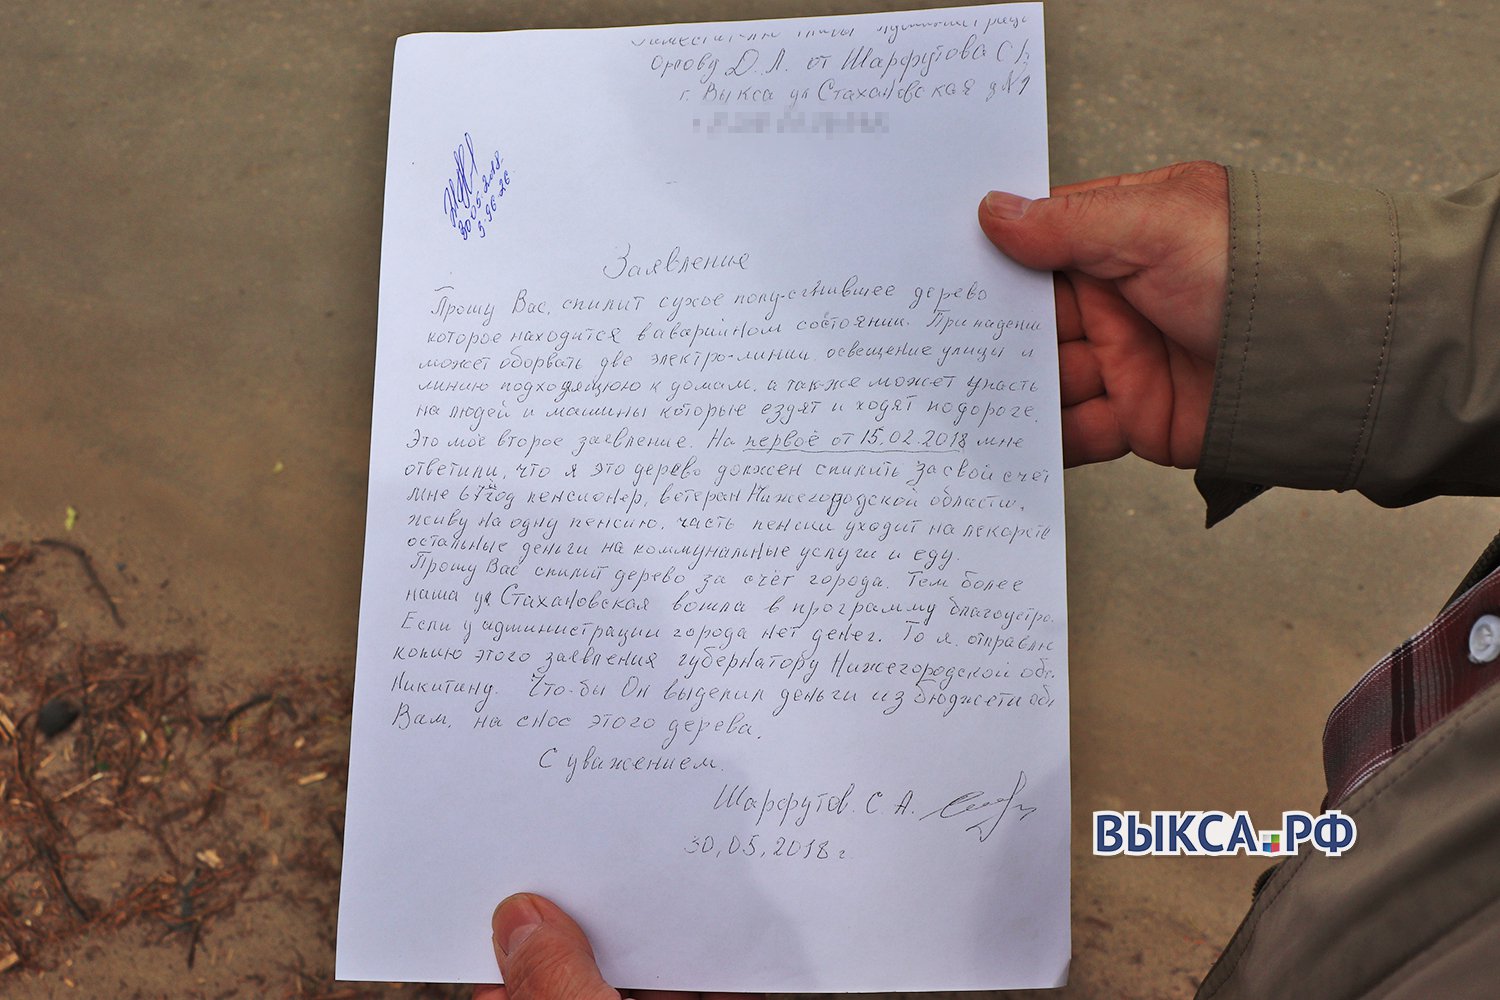 Орлову Д.Л. от Шарфутова С
г. Выкса ул Стахановская д №1
30.05.2018.
3-96-26
Заявление
Прошу Вас, спилит сухое полу-сгнившее дерево
которое находится в аварийном состоянии. При падении
может оборвать две электро-линии освещение улицы и
линию подходящюю к домам, а так-же может упасть
на людей и машины которые ездят и ходят по дороге.
Это моё второе заявление. На первоё от 15.02.2018 мне
ответили, что я это дерево должен спилить за свой счёт
Мне 67й год пенсионер, ветеран Нижегородской области,
живу на одну пенсию, часть пенсии уходит на лекарств
остальные деньги на коммунальные услуги и еду.
Прошу Вас спилит дерево за счёт города. Тем более
наша ул Стахановская вошла в программу благоустро
Если у администрации города нет денег. То я отправлю
копию этого заявления губернатору Нижегородской обл.
Никитину. Что-бы Он выделил деньги из бюджета обл
Вам, на снос этого дерева.
С уважением.
Шарфутов. С. А.
30,05,2018 г.
ВЫКСА.РФ